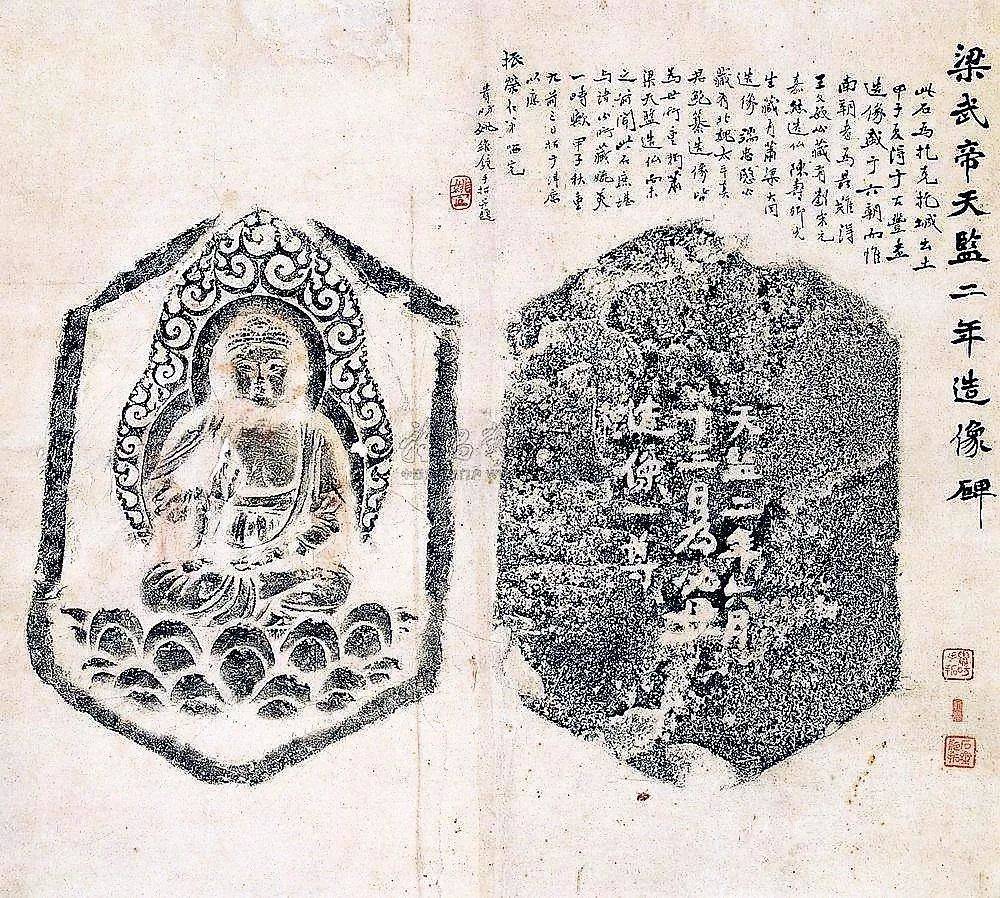 梁武帝天監二年造像碑
此石為托克托城出土
甲子友得于古豐並
造像盛于六朝而惟
南朝者為最難得
王文敏公藏有劉宋元
嘉造仏陳壽卿先
生藏有蕭梁大同
造像端忠愍公
藏有北魏太平真
君鮑纂造像皆
為世所重獨蕭
梁天監造仏尚未
之前聞此石庶堪
与諸公所藏媲美
一時歟甲子秋重
九前三日拓于津
以應
振榮仁弟
姚手拓並題
天監二年七月
十二日為
造像一尊